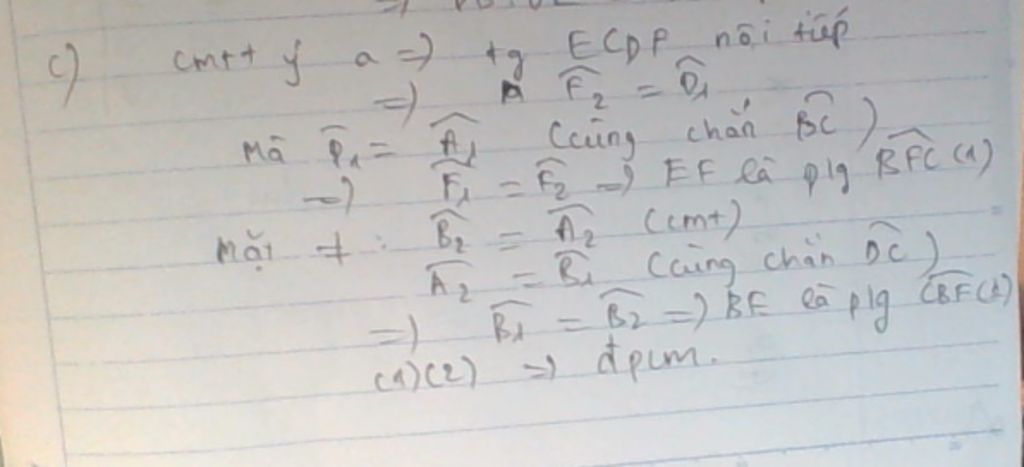 c) cmtt ý a => tg ECDF nội tiếp
=> F̂₂ = D̂₁
Mà D̂₁ = Â₁ (cùng chắn B͡C)
=> F̂₁ = F̂₂ => EF là plg B̂FC (1)
Mặt ≠ : B̂₂ = Â₂ (cmt)
Â₂ = B̂₁ (cùng chắn D͡C)
=> B̂₁ = B̂₂ => BE là plg ĈBF (2)
(1)(2) => đpcm.